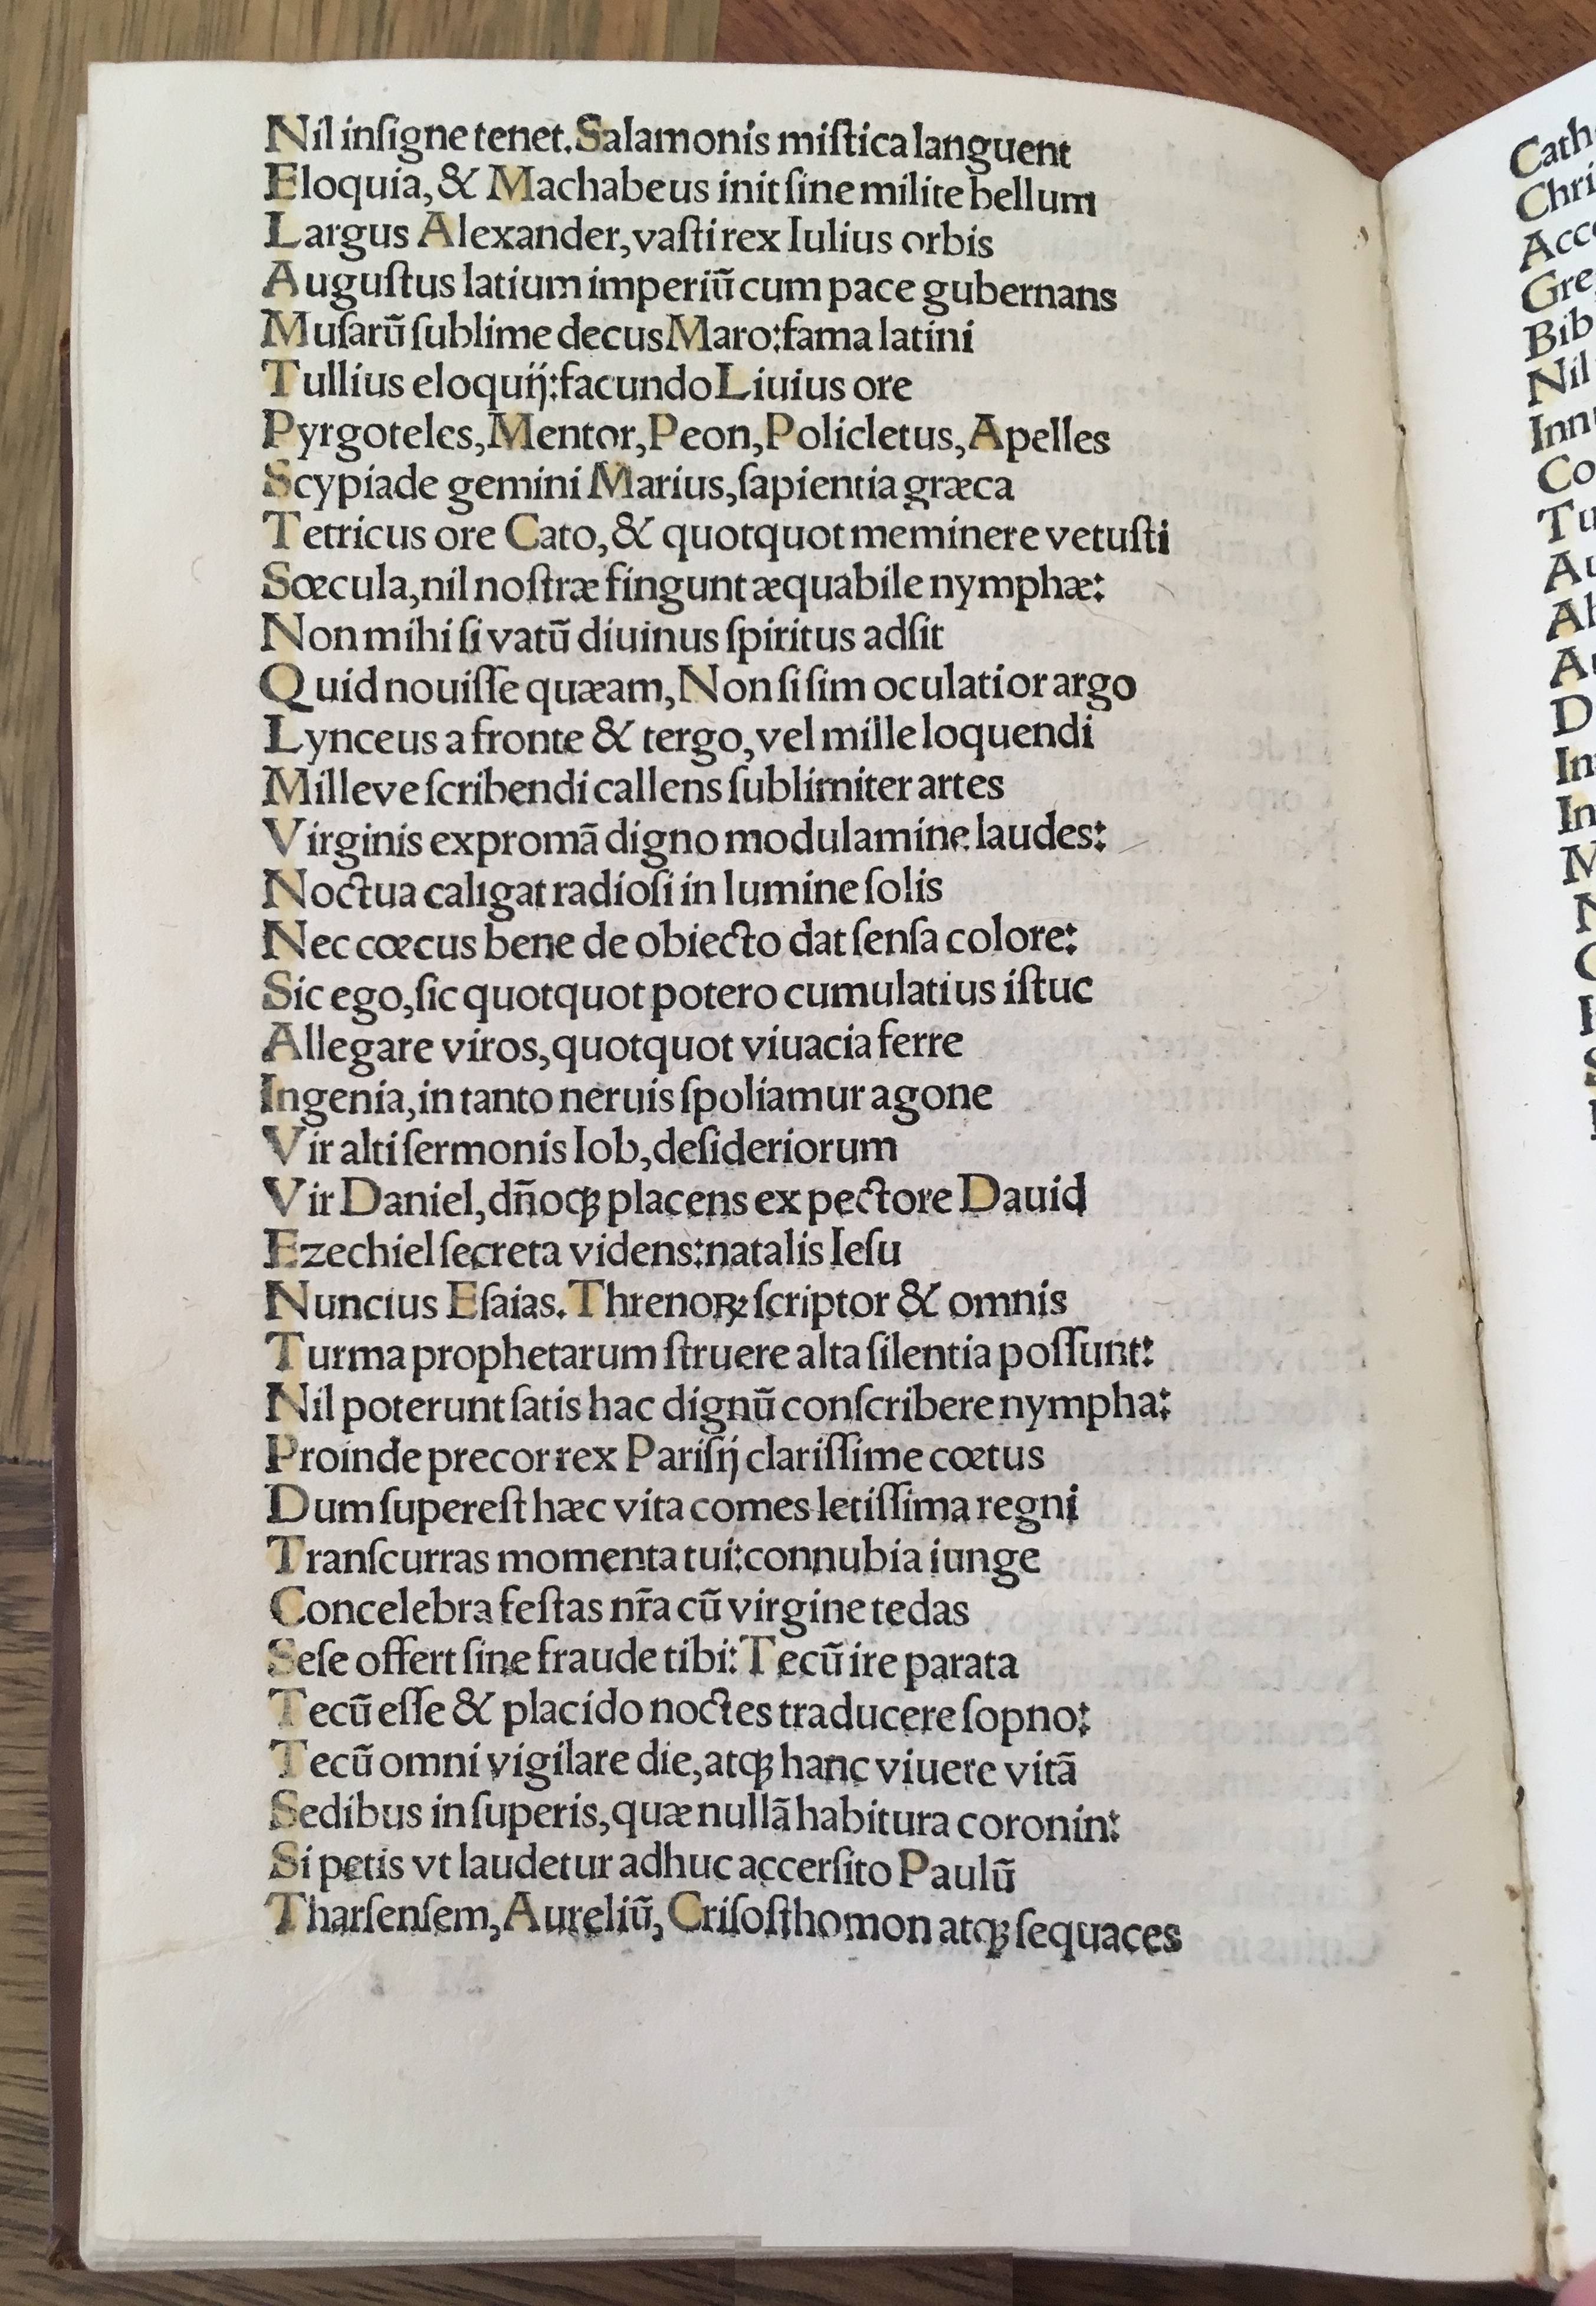 Nil inſigne tenet. Salamonis miſtica languent
Eloquia, & Machabeus init ſine milite bellum
Largus Alexander, vaſti rex Iulius orbis
Auguſtus latium imperiū cum pace gubernans
Muſarū ſublime decus Maro: fama latini
Tullius eloquij: facundo Liuius ore
Pyrgoteles, Mentor, Peon, Policletus, Apelles
Scypiade gemini Marius, ſapientia græca
Tetricus ore Cato, & quotquot meminere vetuſti
Sœcula, nil noſtræ fingunt æquabile nymphæ:
Non mihi ſi vatū diuinus ſpiritus adſit
Quid nouiſſe quæam, Non ſi ſim oculatior argo
Lynceus a fronte & tergo, vel mille loquendi
Milleve ſcribendi callens ſublimiter artes
Virginis expromā digno modulamine laudes:
Noctua caligat radioſi in lumine ſolis
Nec cœcus bene de obiecto dat ſenſa colore:
Sic ego, ſic quotquot potero cumulatius iſtuc
Allegare viros, quotquot viuacia ferre
Ingenia, in tanto neruis ſpoliamur agone
Vir alti ſermonis Iob, deſideriorum
Vir Daniel, dn̄oqꝫ placens ex pectore Dauid
Ezechiel ſecreta videns: natalis Ieſu
Nuncius Eſaias. Threnoꝝ ſcriptor & omnis
Turma prophetarum ſtruere alta ſilentia poſſunt:
Nil poterunt ſatis hac dignū conſcribere nympha:
Proinde precor rex Pariſij clariſſime cœtus
Dum ſupereſt hæc vita comes letiſſima regni
Tranſcurras momenta tui: connubia iunge
Concelebra feſtas nr̄a cū virgine tedas
Seſe offert ſine fraude tibi: Tecū ire parata
Tecū eſſe & placido noctes traducere ſopno:
Tecū omni vigilare die, atqꝫ hanc viuere vitā
Sedibus in ſuperis, quæ nullā habitura coronin:
Si petis vt laudetur adhuc accerſito Paulū
Tharſenſem, Aureliū, Criſoſthomon atqꝫ ſequaces
Cath
Chri
Acc
Gre
Bib
Nil
Inn
Co
Tu